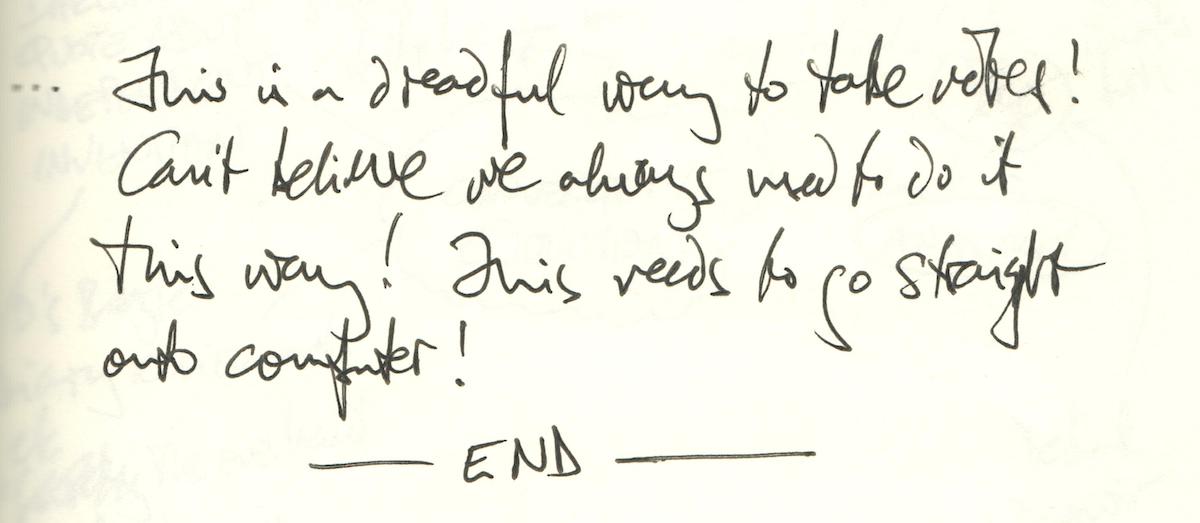 ... This is a dreadful way to take notes!
Can't believe we always used to do it
this way! This needs to go straight
onto computer!
— END —